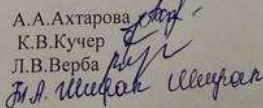 А.А.Ахтарова
К.В.Кучер
Л.В.Верба
Ширак Ширак